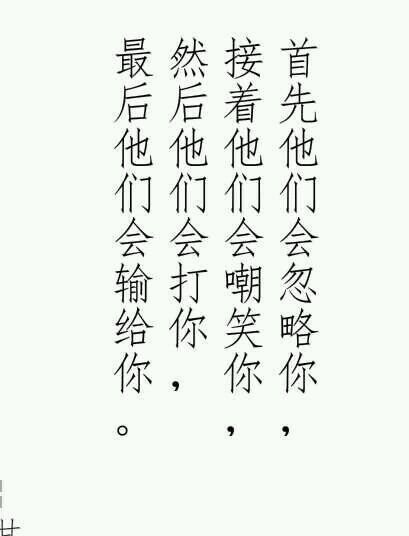 首先他们会忽略你，
接着他们会嘲笑你，
然后他们会打你，
最后他们会输给你。